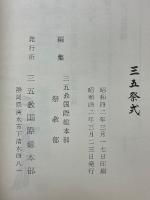 三五祭式
昭和四二年三月一七日印刷
昭和四二年三月二三日発行
編集
三五教国際総本部
祭教部
発行所
三五教国際総本部
静岡県清水市下清水四八一